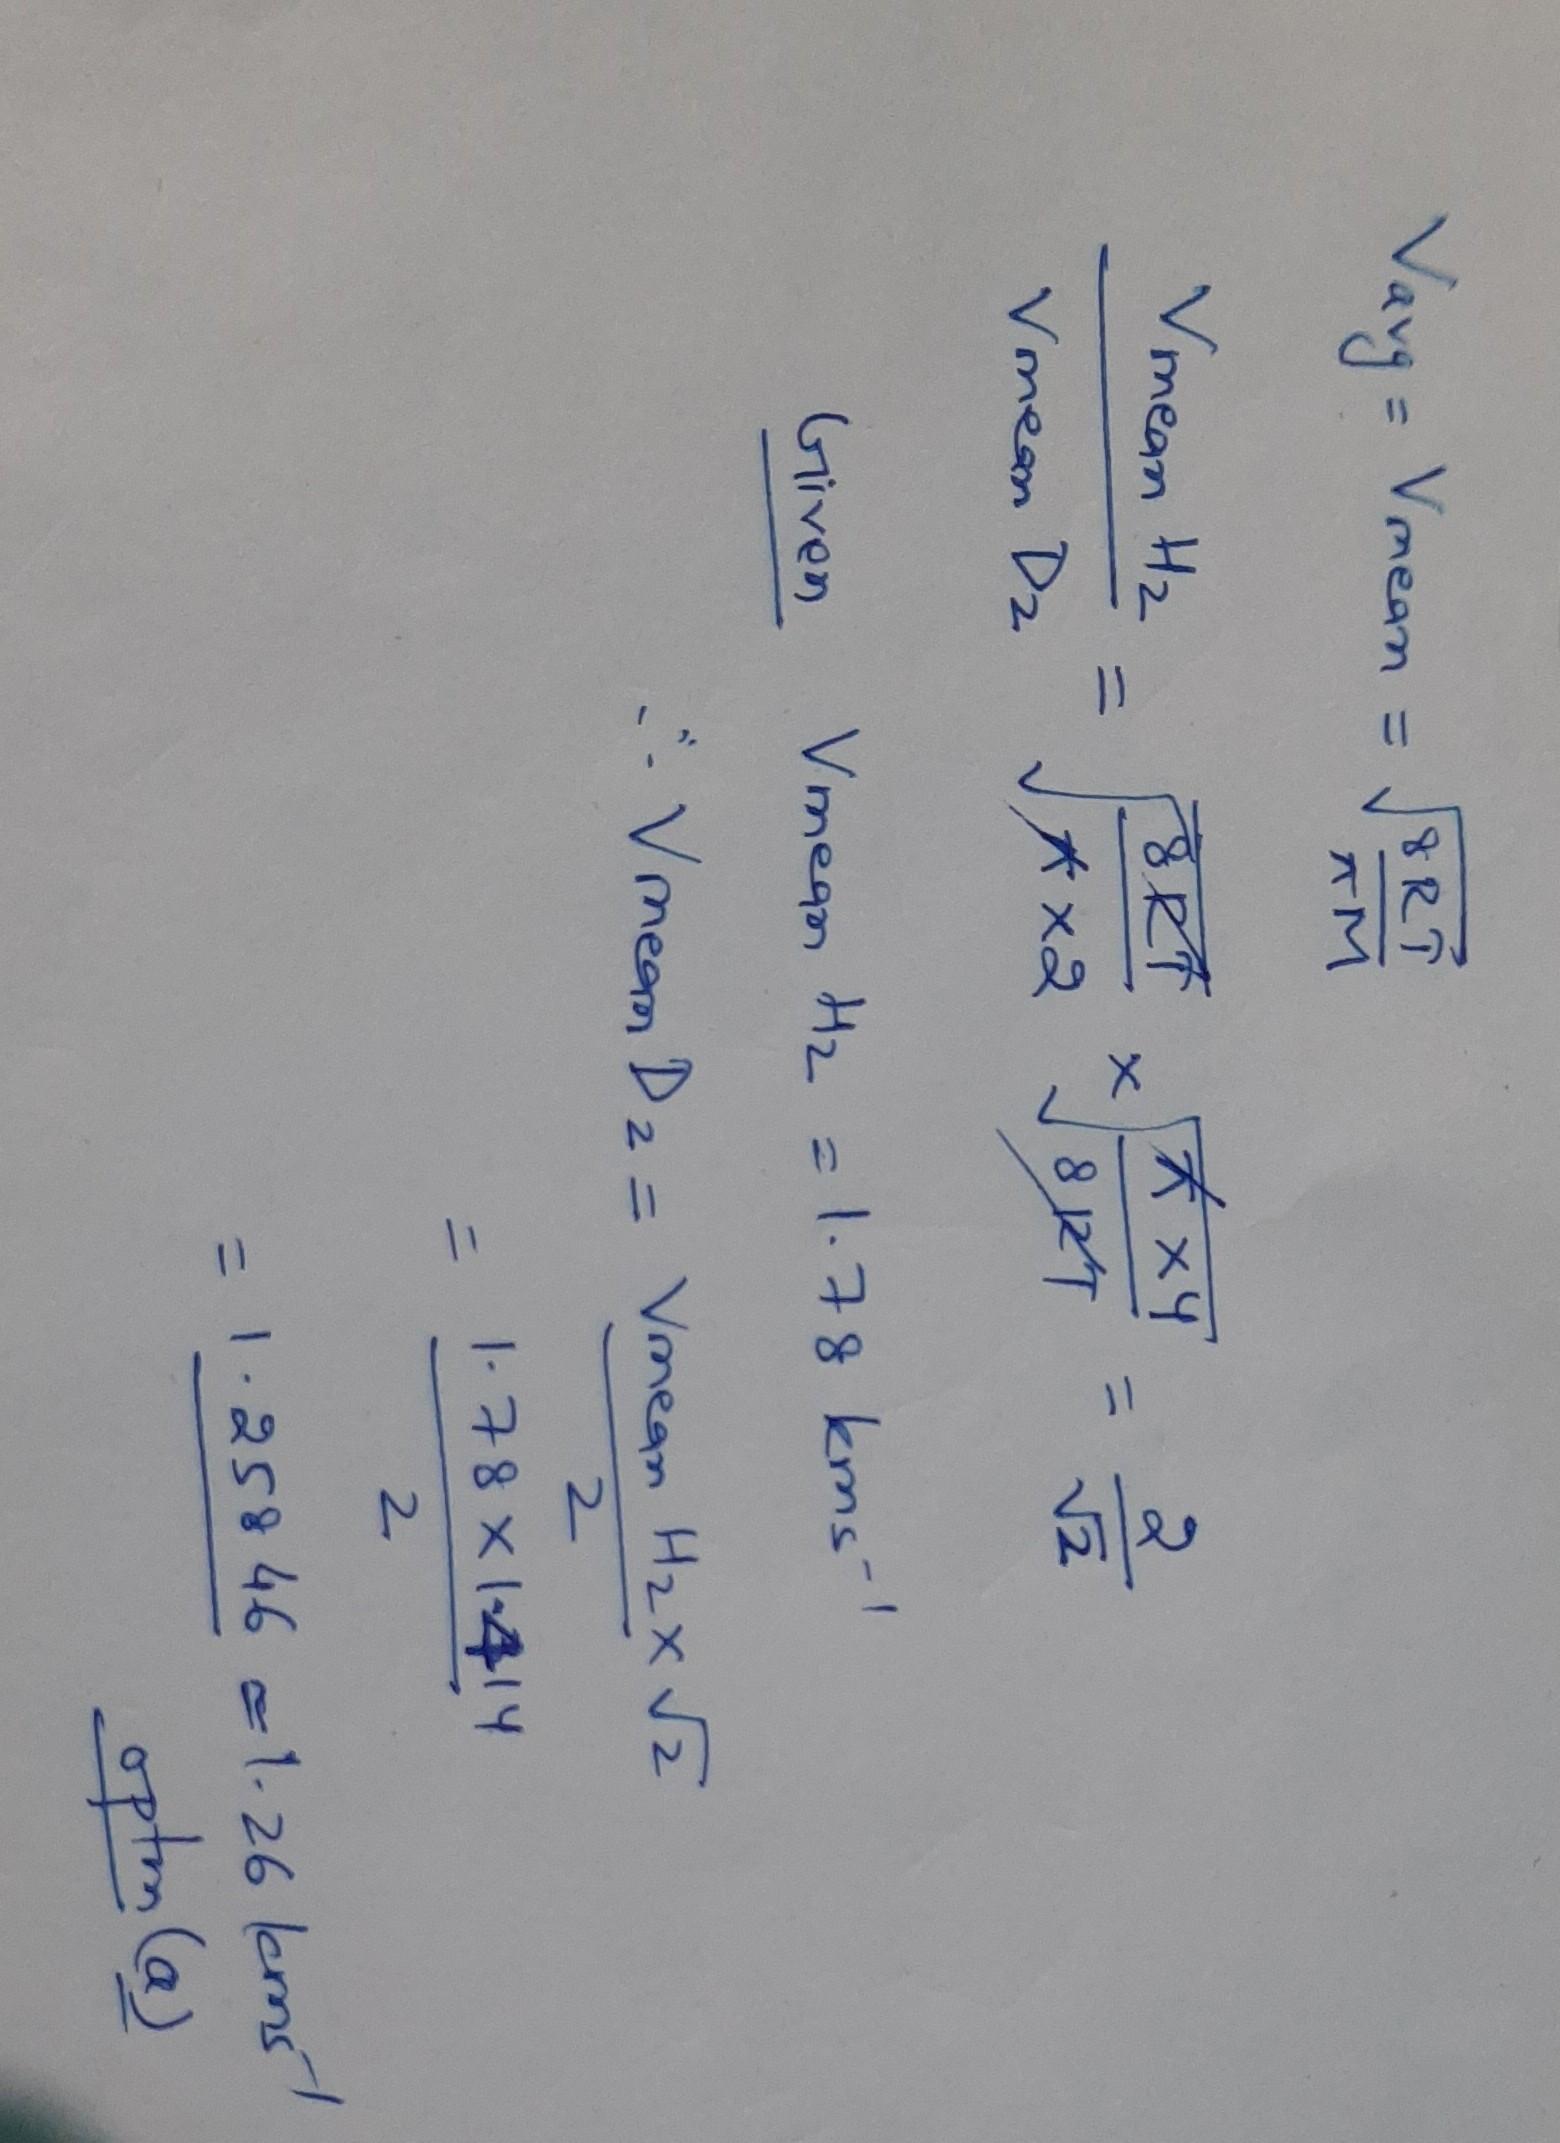 Vavg = Vmean = √(8RT/πM)
Vmean H₂ / Vmean D₂ = √(8RT/π×2) × √(π×4/8RT) = 2/√2
Given Vmean H₂ = 1.78 kms⁻¹
∴ Vmean D₂ = Vmean H₂ × √2 / 2
= 1.78 × 1.414 / 2
= 1.25846 ≃ 1.26 kms⁻¹
optn (a)